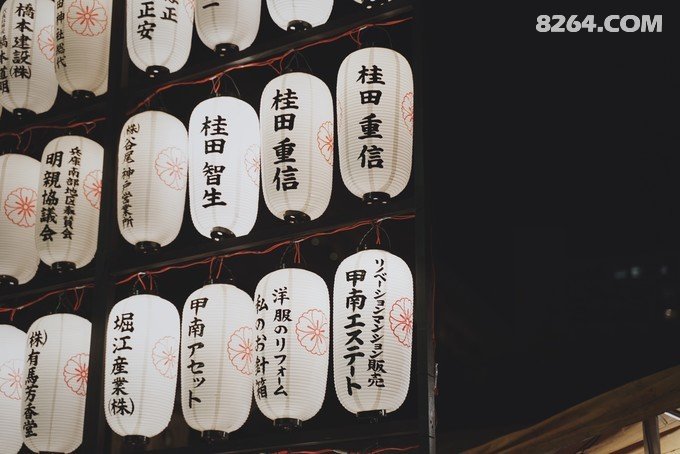 8264.COM
橋本建設(株)
橋本道明
田神社総代
正安
一正
(株)谷尾 神戸営業所
桂田 智生
桂田 重信
桂田 重信
兵庫南部地区委員会
明親協議会
(株)有馬芳香堂
堀江産業(株)
甲南アセット
洋服のリフォーム
私のお針箱
リノベーションマンション販売
甲南エステート